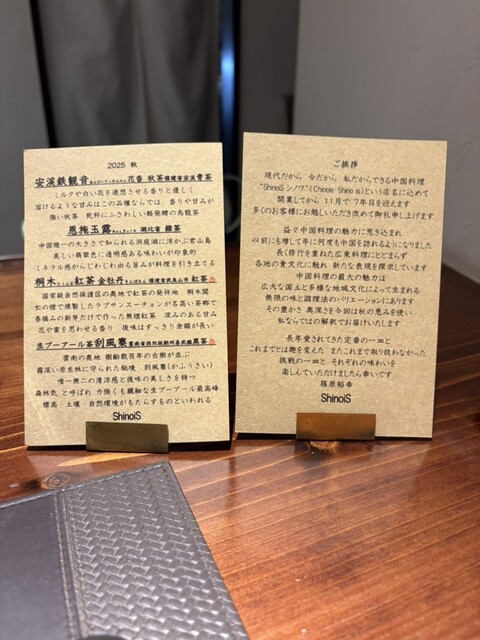 2025 秋
安溪鉄観音 花香 秋茶 福建省安渓 青茶
ミルクや白い花を連想させる香りと優しく
溶けるような甘みはこの品種ならでは 香りや甘みが
強い秋茶 乾杯にふさわしい軽発酵の烏龍茶
恩施玉露 湖北省 緑茶
中国随一の大きさで知られる洞庭湖に浮かぶ君山島
美しい翡翠色に透明感ある味わいが印象的
ミネラル感からじわじわ出る旨みが料理を引き立てる
桐木 紅茶 金牡丹 福建省武夷山市 紅茶
国家級自然保護区の奥地で紅茶の発祥地 桐木関
松の煙で燻製したラプサンスーチョンが名高い茶郷で
春摘みの新芽だけで作った無煙紅茶 深みのある甘み
花や蜜を思わせる香り 後味はすっきり余韻が長い
生プーアール茶 刮風寨 黒茶
雲南の奥地 樹齢数百年の古樹が並ぶ
霧深い原生林に守られた秘境 刮風寨(かふうさい)
唯一無二の清涼感と後味の美しさを持つ
森林気 と呼ばれ 力強くも繊細な生プーアール最高峰
標高・土壌・自然環境がもたらすものといわれる
ShinoiS
ご挨拶
現代だから 今だから 私だからできる中国料理
“ShinoiSシノワ”(Chinois・Shino is)という店名に込めて
開業してから 11月で7年目を迎えます
多くのお客様にお越しいただき改めて御礼申し上げます
益々中国料理の魅力に惹き込まれ
以前にも増して年に何度も中国を訪れるようになりました
長く修行を重ねた広東料理にとどまらず
各地の食文化に触れ 新たな表現を探求しています
中国料理の最大の魅力は
広大な国土と多様な地域文化によって生まれる
無限の味と調理法のバリエーションにあります
その豊かさ 奥深さを今回は秋の恵みを使い
私ならではの解釈でお届けいたします
長年愛されてきた定番の一皿と
これまでとは趣を変えた またこれまで取り扱わなかった
挑戦の一皿と それぞれの味わいを
楽しんでいただけましたら幸いです
篠原裕幸
ShinoiS